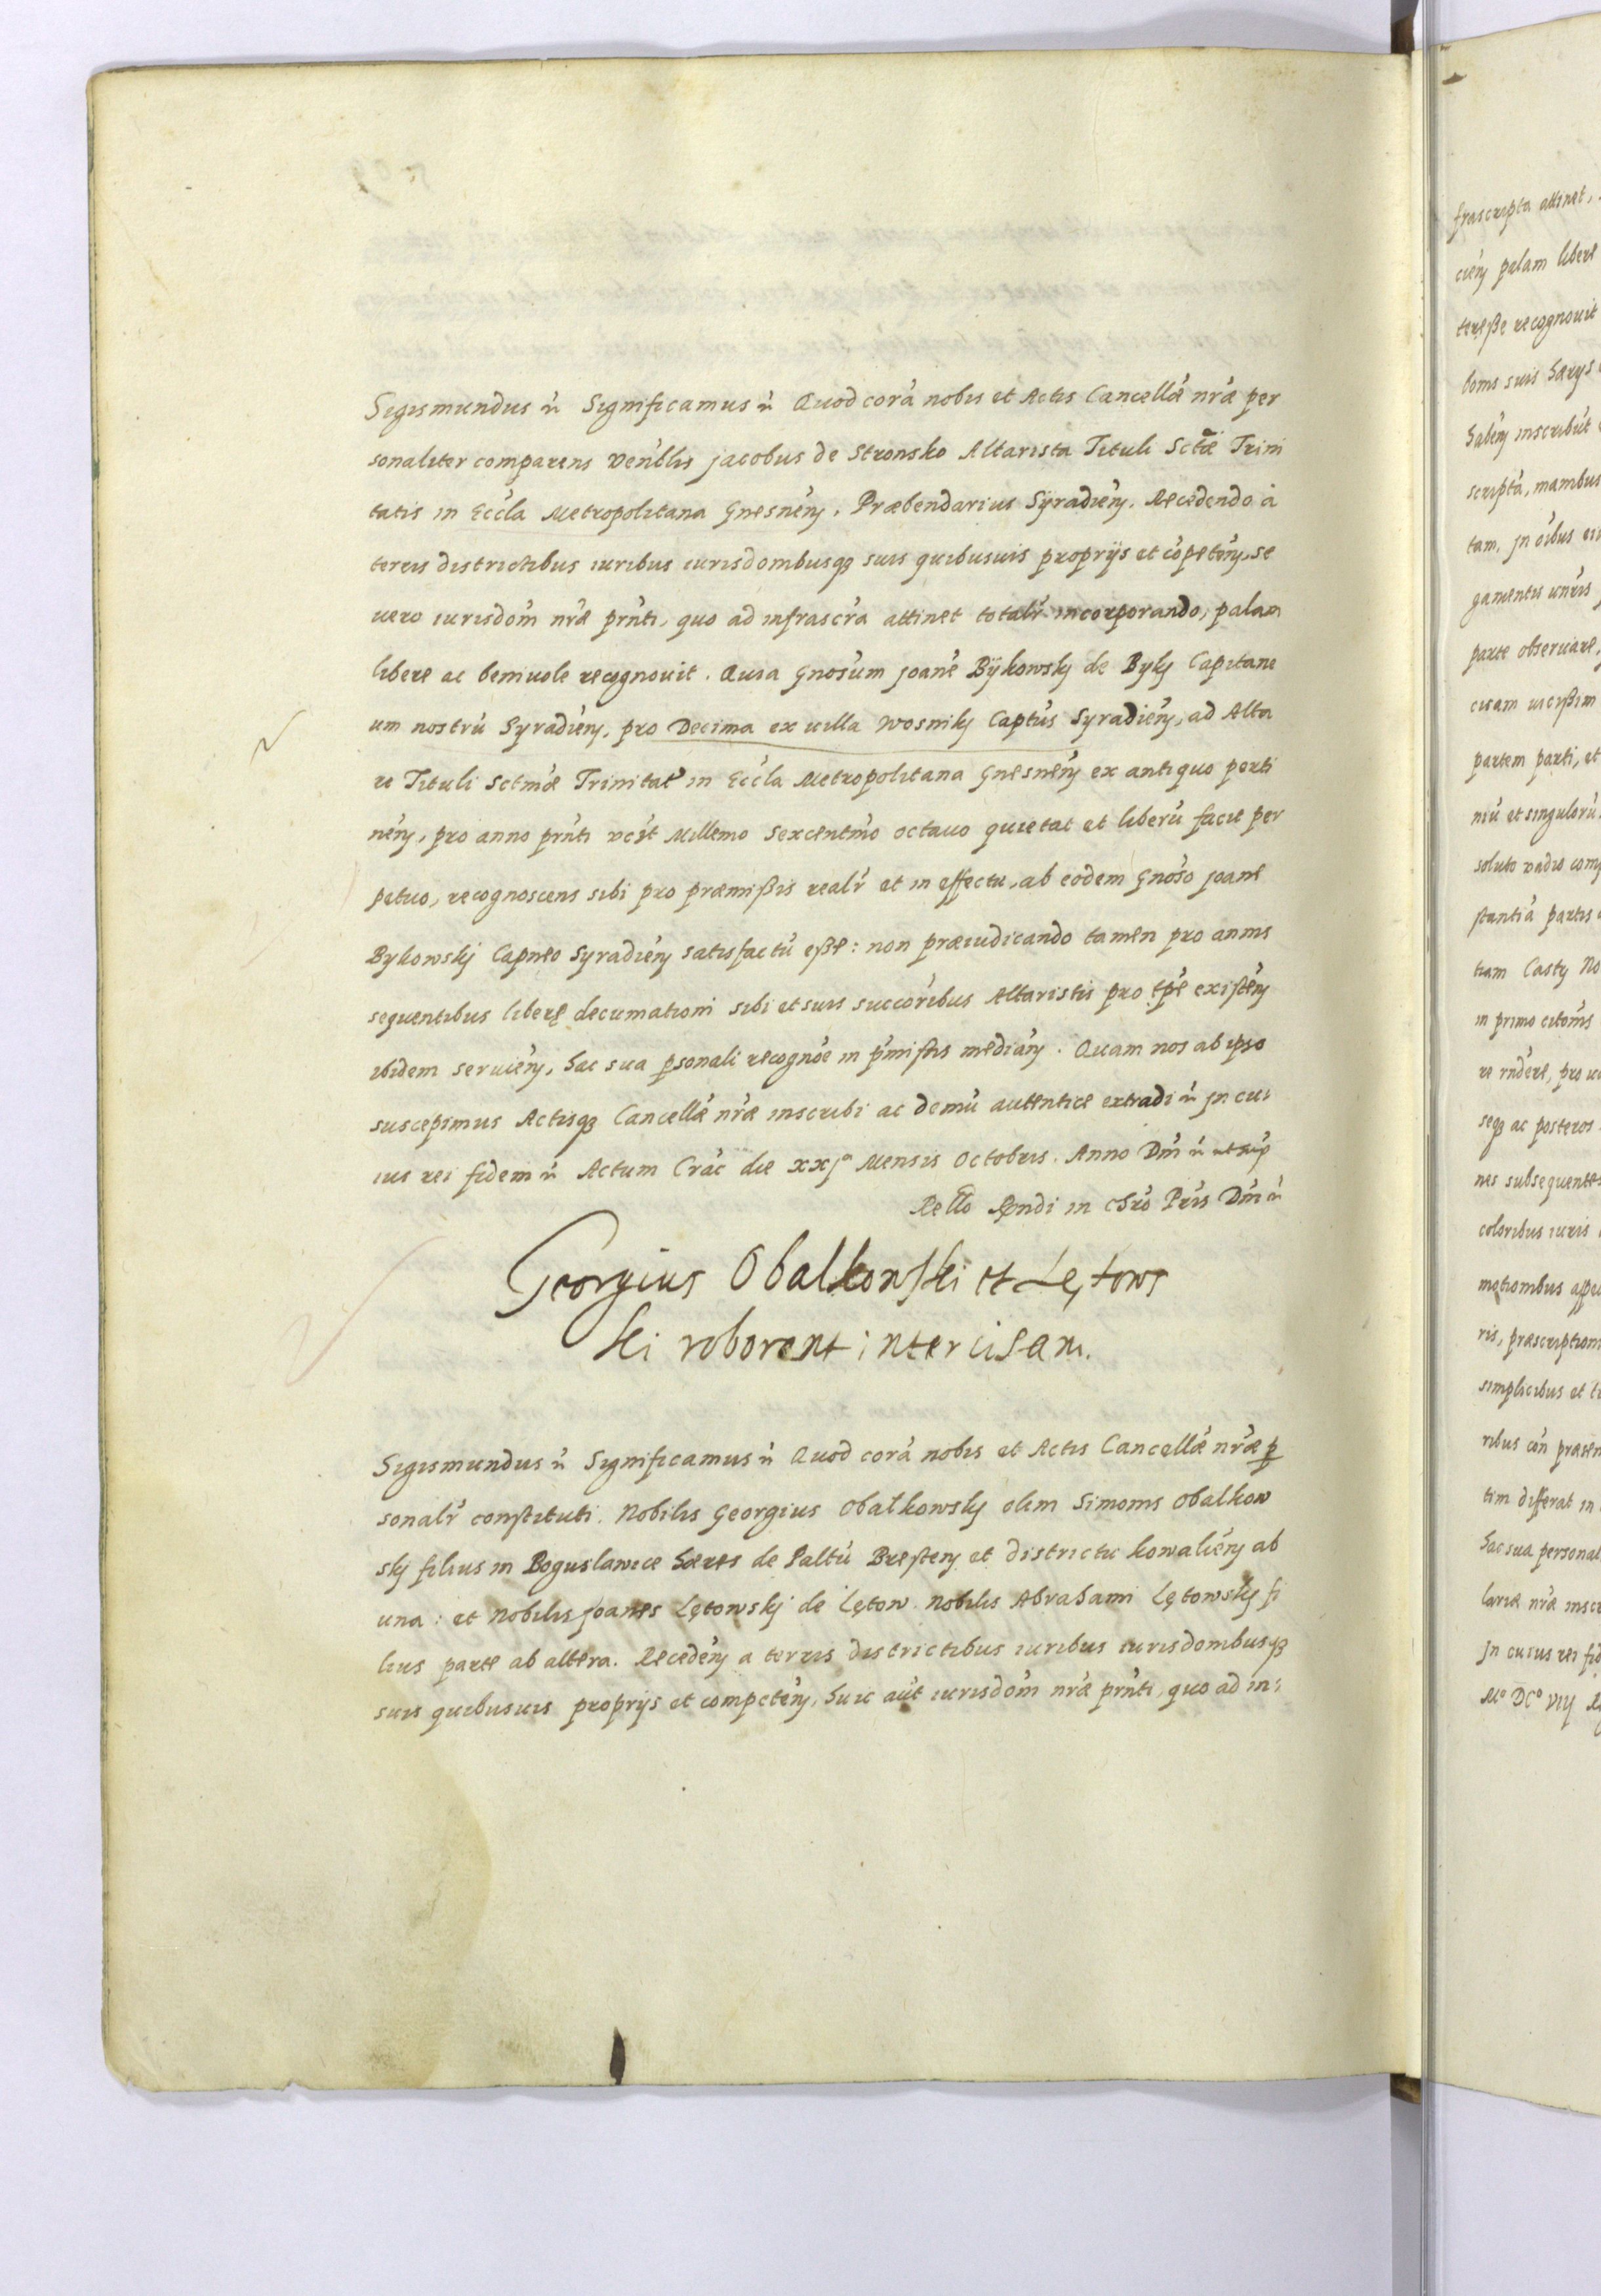 Sigismundus ꝛc Significamus ꝛc Quod corã nobis et Actis Cancellæ nr̃æ per
sonaliter comparens Veñblis Jacobus de Stronsko Altarista Tituli Sctæ Trini
tatis in Eccĺa Metropolitana Gnesneń, Præbendarius Sÿradień. Recedendo à
terris districtibus iuribus iurisdombusq3 suis quibusuis proprijs et cõpeteń, se
uero iurisdom̃ nr̃æ prñti, quo ad infrascr̃a attinet totalr̃ incorporando, palam
libere ac beniuole recognouit. Quia Gnosum Joanẽ Bÿkowskj de Bykj Capitane
um nostrũ Syradień, pro Decima ex uilla Wosnikj Captũs Syradień, ad Alta
re Tituli Sctmæ Trinitat in Eccĺa Metropolitana Gnesneń ex antiquo perti
neń, pro anno prñti vcȝt Millemo Sexcentmo octauo quietat et liberũ facit per
petuo, recognoscens sibi pro præmißis realr̃ et in effectu, ab eodem Gnoso Joane
Bykowskj Capneo Syradień satisfactũ eße: non præiudicando tamen pro annis
sequentibus liberę decimationi sibi et suis succoribus Altaristis pro tp̃e existeń
ibidem seruień, hac sua p̱sonali recognõe in p̃missis mediań. Quam nos ab ipso
suscepimus Actisq3 Cancellæ nr̃æ inscribi ac demũ autentice extradi ꝛc Jn cui
ius rei fidem ꝛc Actum Crac̃ die xxjᵃ Mensis Octobris. Anno Dm̃ ꝛc ut sup̃
Rello Rṇdi in Chrõ Pris Dm̃ ꝛc
Georgius Obalkonski et Lętows
ki roborant intercisam.
Sigismundus ꝛc Significamus ꝛc Quod corã nobis et Actis Cancellæ nr̃æ p̱
sonalr̃ constituti. Nobilis Georgius Obałkowskj olim Simonis Obalkow
skj filius in Boguslawice hæres de Paltũ Bresteń et districtu Kowalień ab
una: et Nobilis Joanes Lętowskj de Lętow Nobilis Abrahami Lętowskj fi
lius parte ab altera. Recedeń a terris districtibus iuribus iurisdombusq3
suis quibusuis proprijs et competeń, huic aũt iurisdom̃ nr̃æ prñti, quo ad in:
frascripta attinet,
cień palam libere
tereße recognouit
bonis suis
habeń inscribũt
scripta, manibus
tam, Jn oĩbus
ganientis unr̃is
parte obseruare,
cisam uicißim
partem parti, et
niũ et singulorũ
soluto vadio comp
stantiã partis
tiam Castrj No
in primo citoms
re rndere, pro
seq3 ac posteros
nes subsequentes
coloribus iuris
motionibus appe
ris, præscription
simplicibus et
ribus con præsen
tim differat in
hac sua personal
lariæ nr̃æ inscr
Jn cuius rei fid
Mᵒ DCᵒ VIIJ